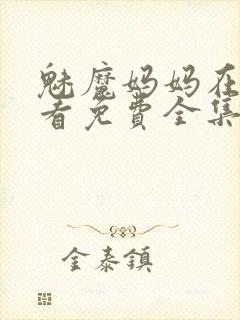 魅魔妈妈在
看免费全集
金泰鎮